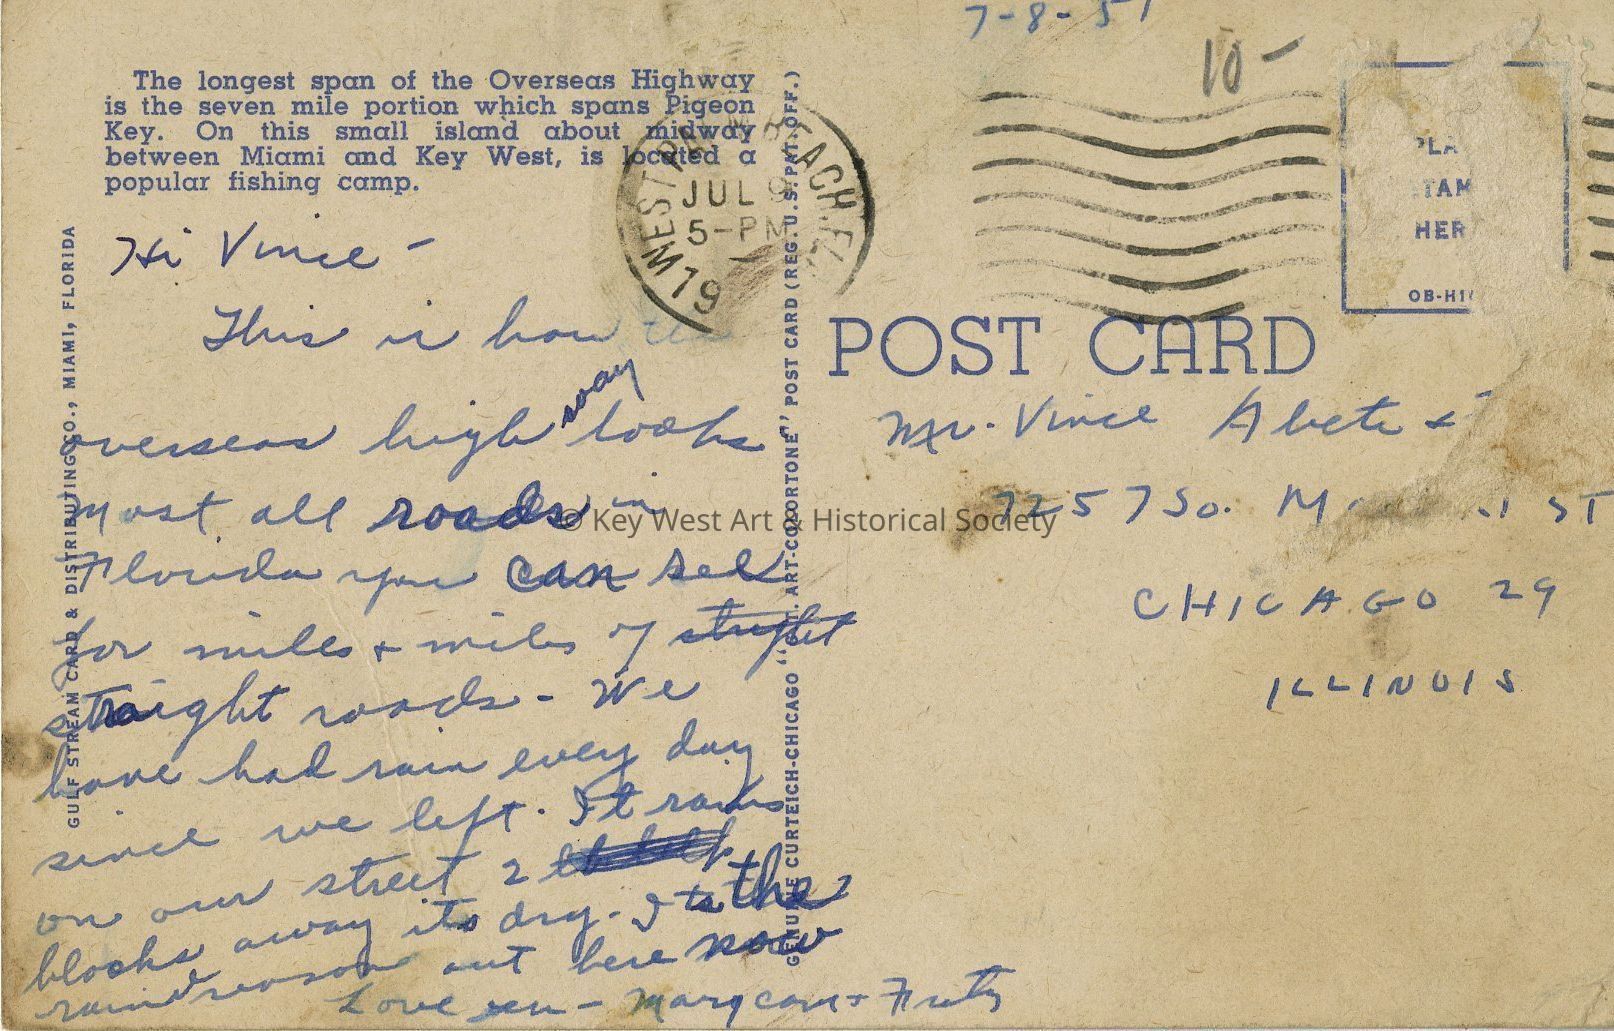 7-8-51
10-
The longest span of the Overseas Highway
is the seven mile portion which spans Pigeon
Key. On this small island about midway
between Miami and Key West, is located a
popular fishing camp.
WEST PALM BEACH, FLA.
JUL 9
5-PM
1951
PLA
TAM
HER
OB-HI
POST CARD
GULF STREAM CARD & DISTRIBUTING CO., MIAMI, FLORIDA
GENUINE CURTEICH-CHICAGO "C.T. ART-COLORTONE" POST CARD (REG. U.S. PAT. OFF.)
Hi Vince -
This is how the
overseas highway looks
Most all roads in
Florida you can see
for miles + miles of
straight roads - We
have had rain every day
since we left. It rains
on our street 2
blocks away its dry. Its the
rain season out here now
Love
Mr. Vince
7257 So. ST
CHICAGO 29
ILLINOIS
© Key West Art & Historical Society